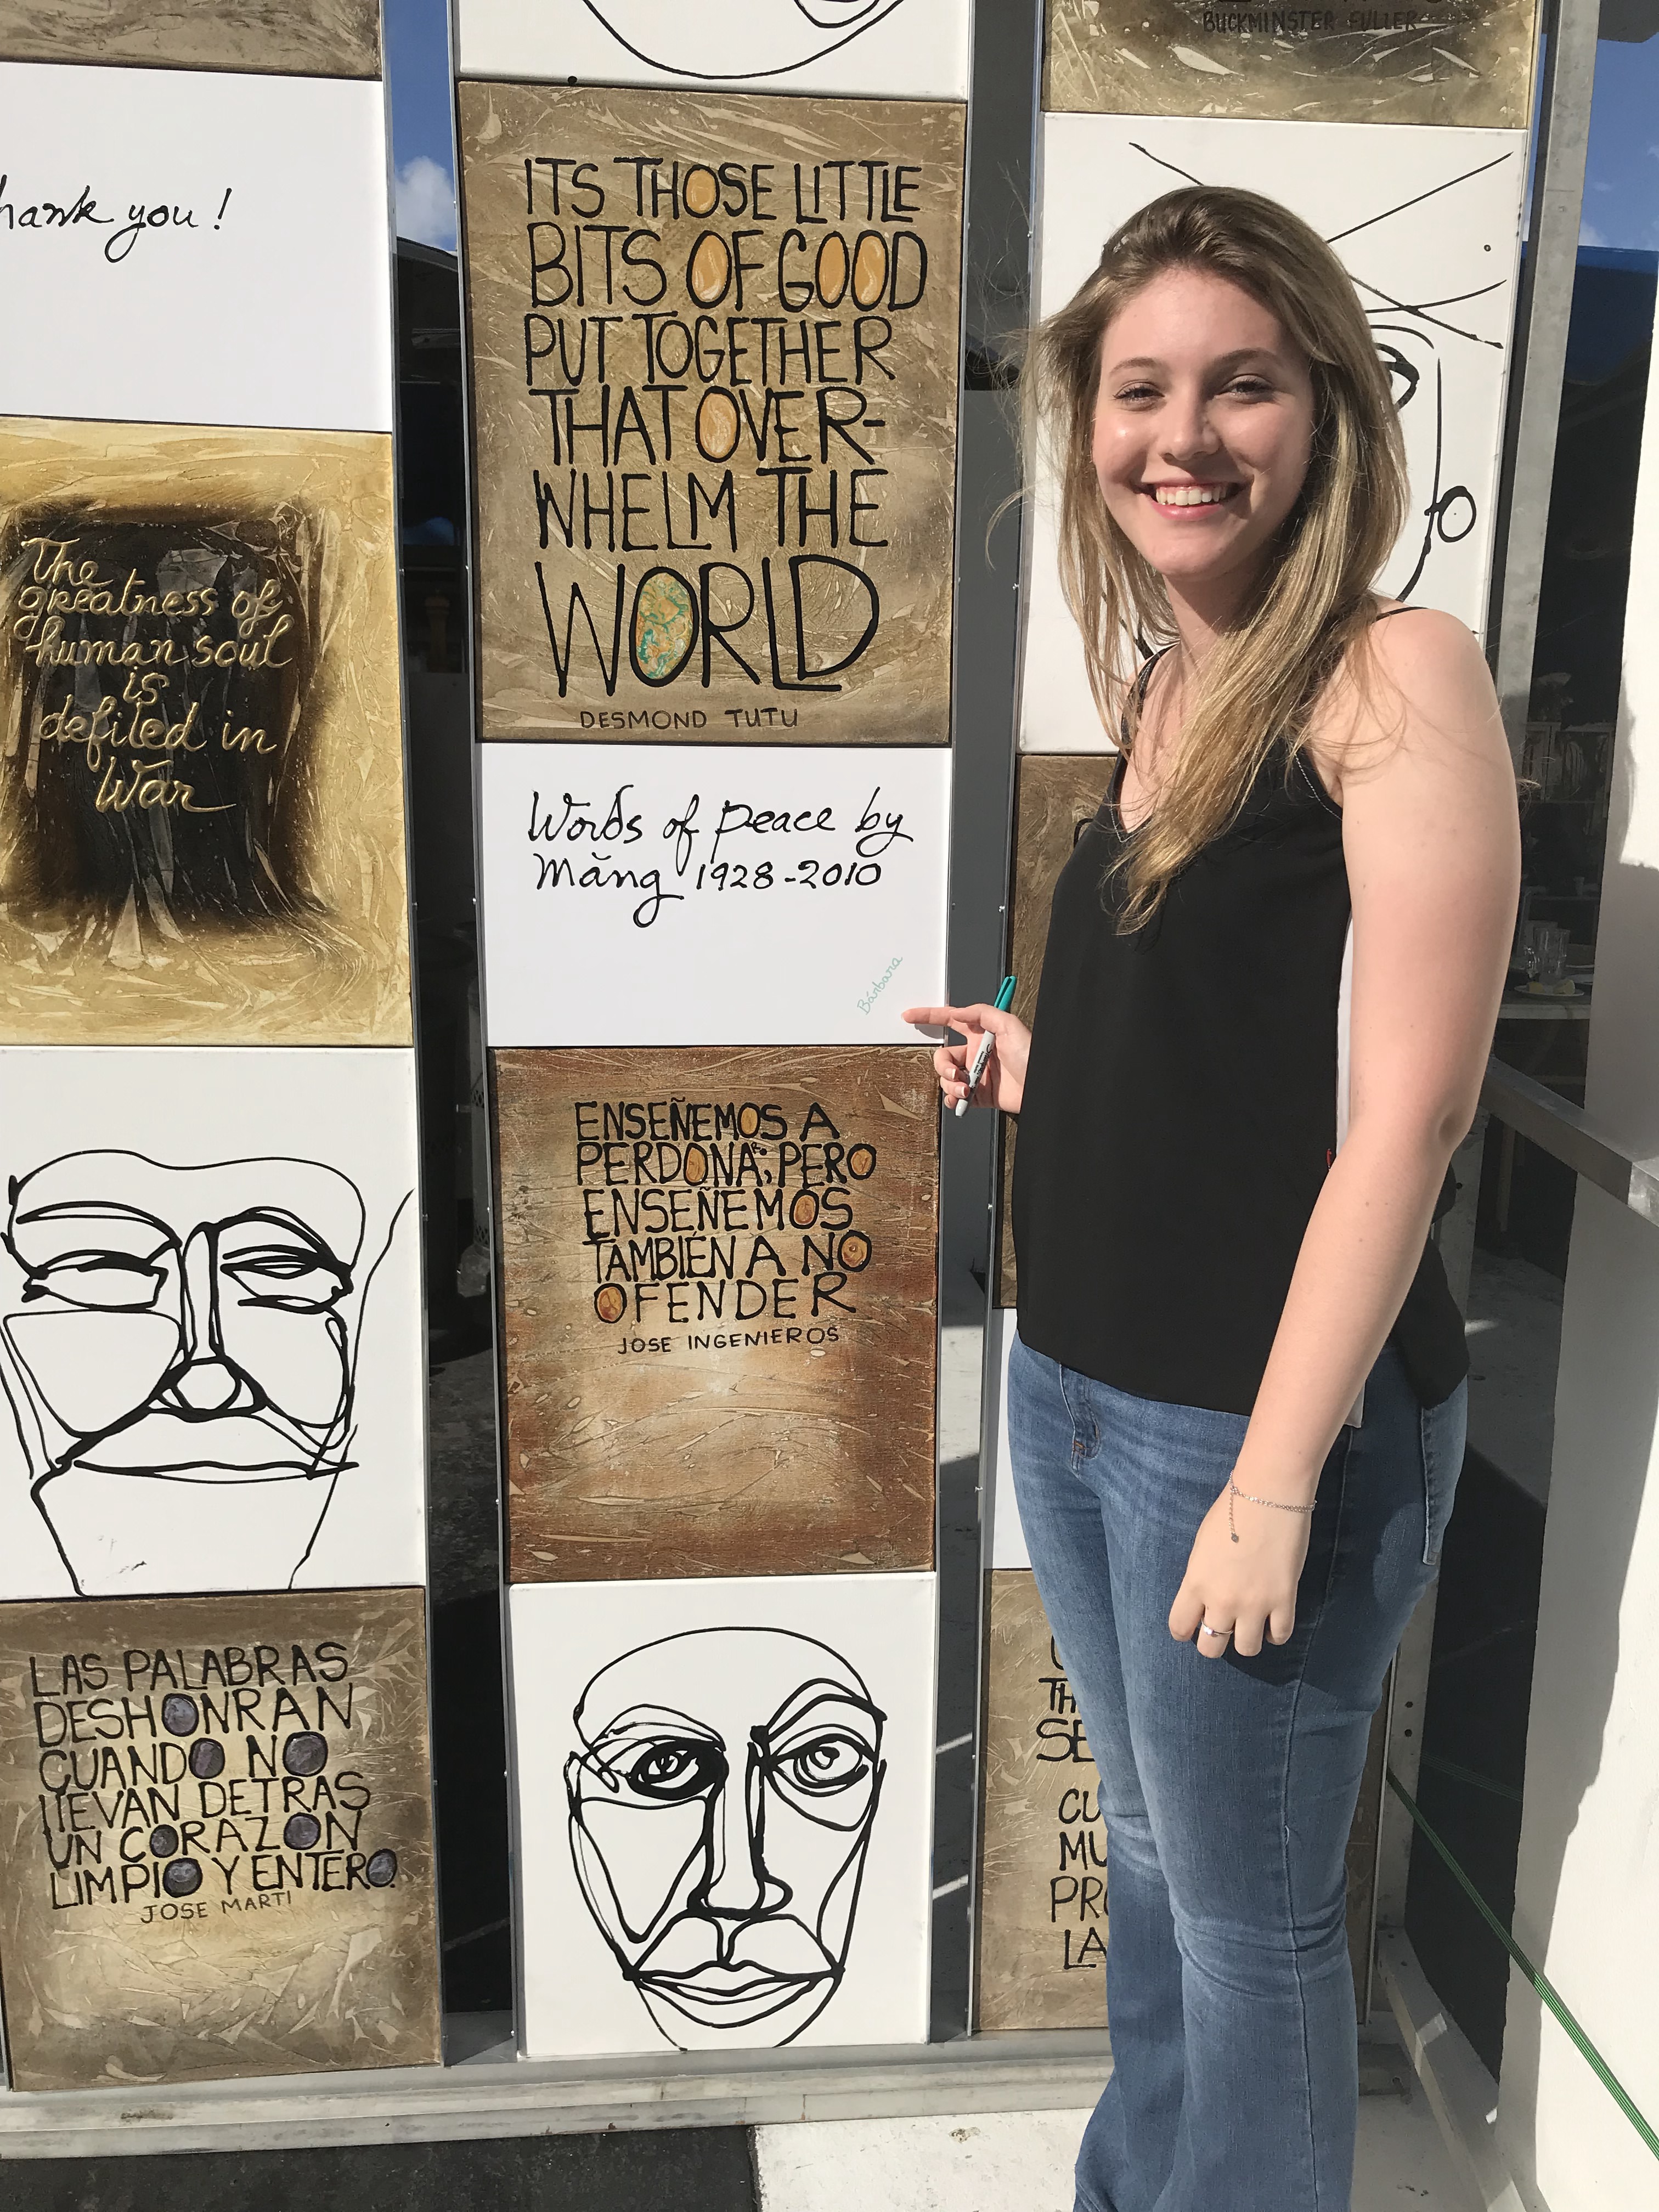 BUCKMINSTER FULLER
ITS THOSE LITTLE
BITS OF GOOD
PUT TOGETHER
THAT OVER-
WHELM THE
WORLD
DESMOND TUTU
hank you!
The
greatness of
human soul
is
defiled in
War
Words of peace by
Măng 1928-2010
Bárbara
ENSEÑEMOS A
PERDONAR, PERO
ENSEÑEMOS
TAMBIÉN A NO
OFENDER
JOSE INGENIEROS
LAS PALABRAS
DESHONRAN
CUANDO NO
llEVAN DETRAS
UN CORAZON
LIMPIO Y ENTERO.
JOSE MARTI
TH
SE
CU
MU
PRO
LA